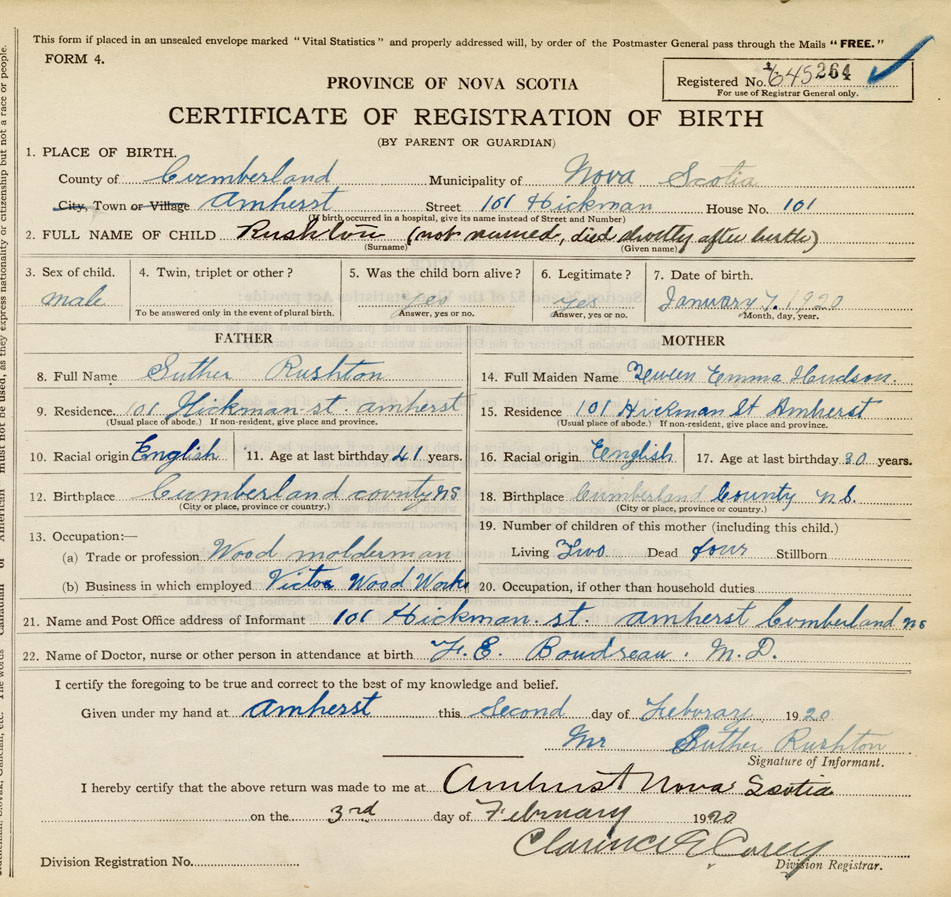 This form if placed in an unsealed envelope marked "Vital Statistics" and properly addressed will, by order of the Postmaster General pass through the Mails "FREE."
FORM 4.
Registered No. 645264
For use of Registrar General only.
PROVINCE OF NOVA SCOTIA
CERTIFICATE OF REGISTRATION OF BIRTH
(BY PARENT OR GUARDIAN)
1. PLACE OF BIRTH.
County of Cumberland Municipality of Nova Scotia
City, Town or Village Amherst Street 101 Hickman House No. 101
(If birth occurred in a hospital, give its name instead of Street and Number)
2. FULL NAME OF CHILD Rushton (not named, died directly after birth)
(Surname) (Given name)
3. Sex of child. 4. Twin, triplet or other? 5. Was the child born alive? 6. Legitimate? 7. Date of birth.
male yes yes January 7. 1920
To be answered only in the event of plural birth. Answer, yes or no. Answer, yes or no. Month, day, year.
FATHER MOTHER
8. Full Name Suther Rushton 14. Full Maiden Name Emma Hudson
9. Residence 101 Hickman st. amherst 15. Residence 101 Hickman St Amherst
(Usual place of abode.) If non-resident, give place and province. (Usual place of abode.) If non-resident, give place and province.
10. Racial origin English 11. Age at last birthday 41 years. 16. Racial origin English 17. Age at last birthday 30 years.
12. Birthplace Cumberland county NS 18. Birthplace Cumberland County N.S.
(City or place, province or country.) (City or place, province or country.)
13. Occupation:— 19. Number of children of this mother (including this child.)
(a) Trade or profession Wood molderman Living Two Dead four Stillborn
(b) Business in which employed Victor Wood Works 20. Occupation, if other than household duties
21. Name and Post Office address of Informant 101 Hickman. st. amherst Cumberland NS
22. Name of Doctor, nurse or other person in attendance at birth F. E. Boudreau. M.D.
I certify the foregoing to be true and correct to the best of my knowledge and belief.
Given under my hand at Amherst this Second day of Feborary 1920
Mr Suther Rushton
Signature of Informant.
I hereby certify that the above return was made to me at Amherst Nova Scotia
on the 3rd day of February 1920
Clarence E Casey
Division Registration No. Division Registrar.